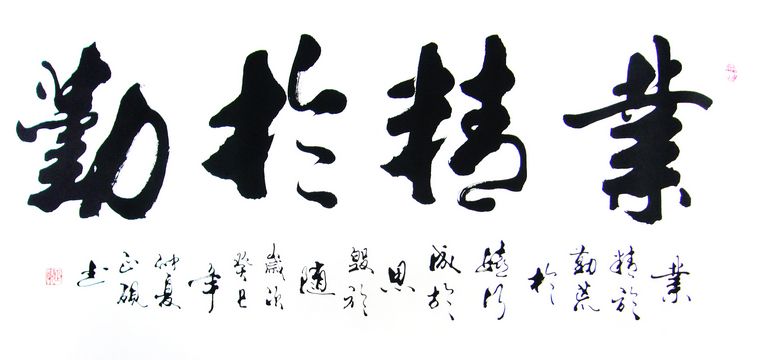 業精於勤
業
精於
勤荒
於
嬉行
成於
思
毀於
隨
歲次
癸巳
年
仲夏
书